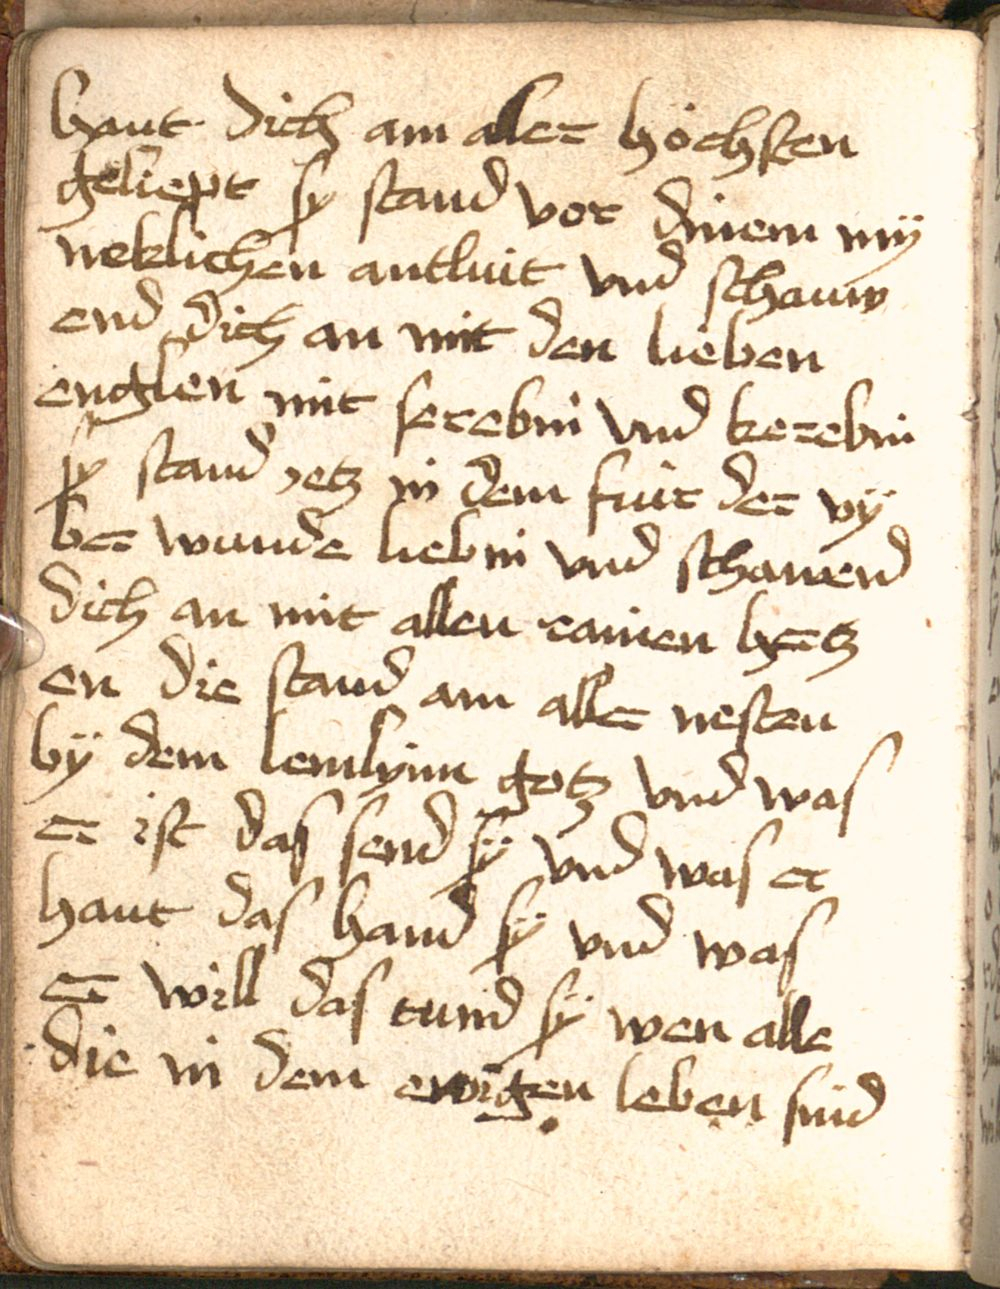 haut dich am aller höchsten
geliept sy stand vor dinem mÿ
neklichen antluit vnd schauw
end dich an mit den lieben
englen mit serebin vnd kerebin
sy stand jetz in dem fuir der vÿ
ber wunde liebin vnd schauend
dich an mit allen rainen hertz
en die stand am aller nesten
bÿ dem lemlynn gotz vnd was
er ist das send sÿ vnd was er
haut das hand sÿ vnd was
er will das tund sÿ wen alle
die in dem ewigen leben sind